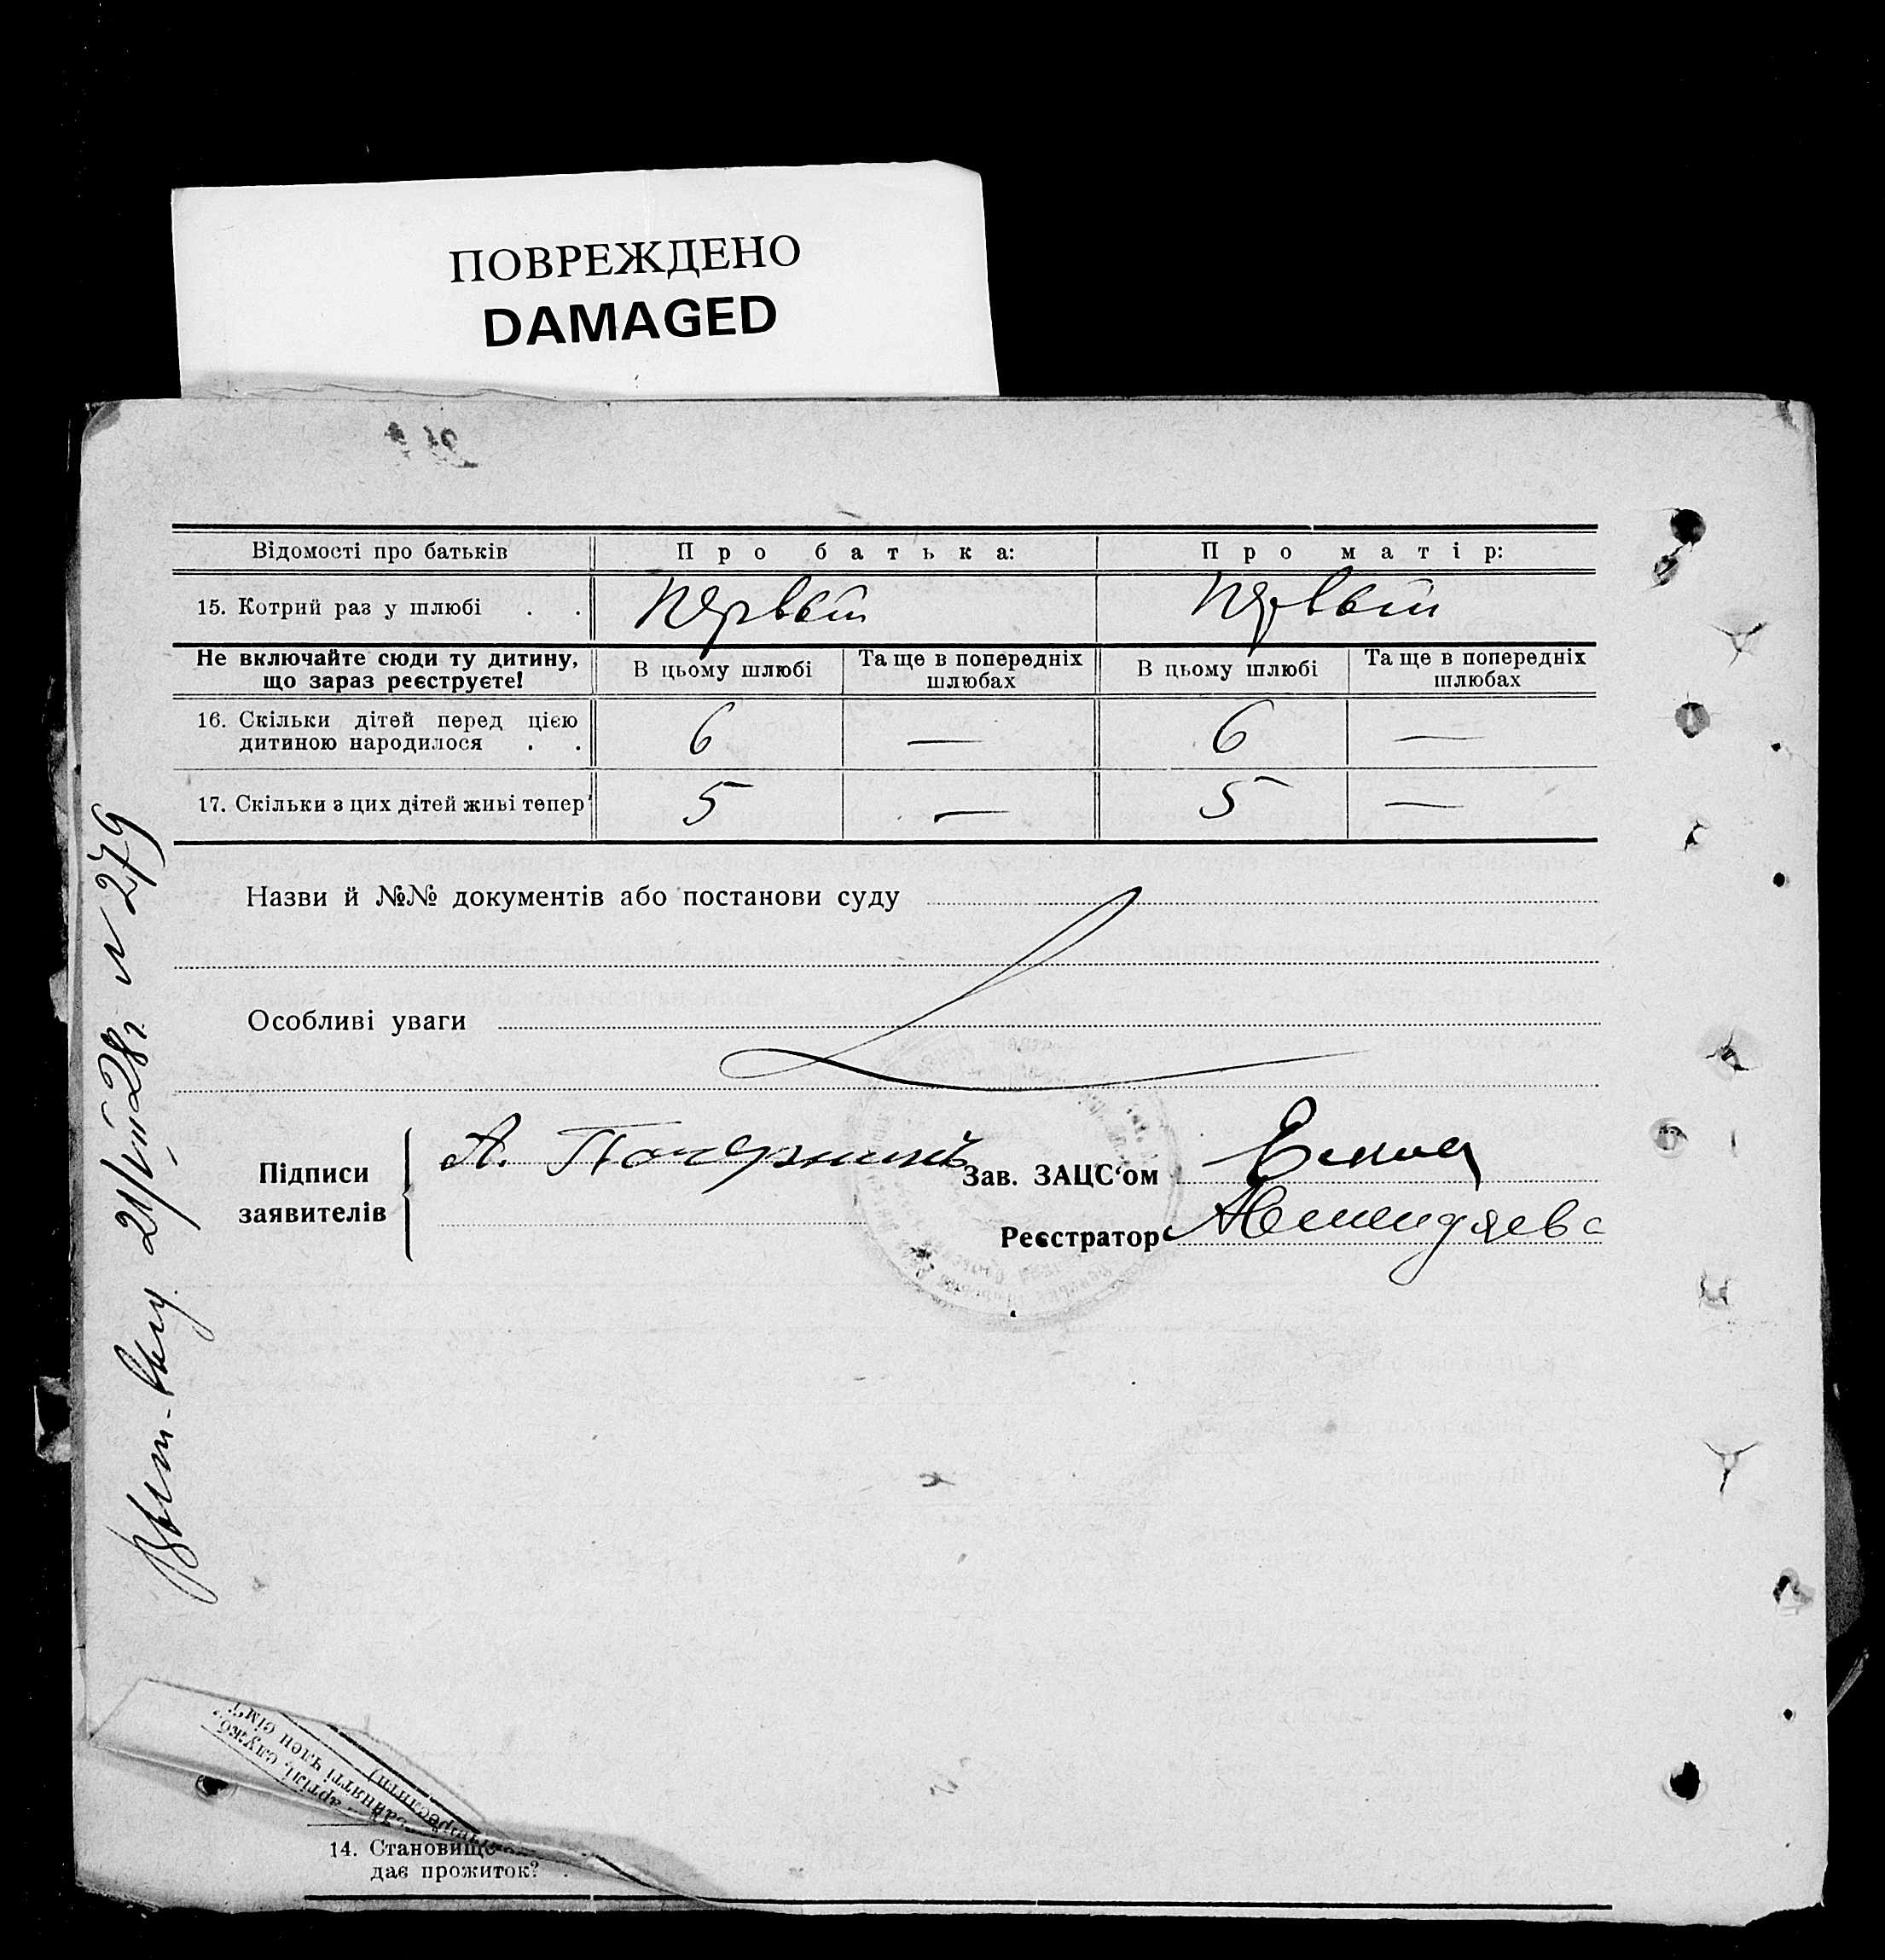 ПОВРЕЖДЕНО
DAMAGED
Відомості про батьків Про батька: Про матір:
15. Котрий раз у шлюбі . . Первый Первый
Не включайте сюди ту дитину, що зараз реєструєте! В цьому шлюбі Та ще в попередніх шлюбах В цьому шлюбі Та ще в попередніх шлюбах
16. Скільки дітей перед цією дитиною народилося . . 6 — 6 —
17. Скільки з цих дітей живі тепер 5 — 5 —
Назви й №№ документів або постанови суду
Особливі уваги
Підписи заявителів А.
Зав. ЗАЦС'ом
Реєстратор
21/VIII 28г. № 279
артілі, службі
член сім'ї
14. Становище
дає прожиток? .